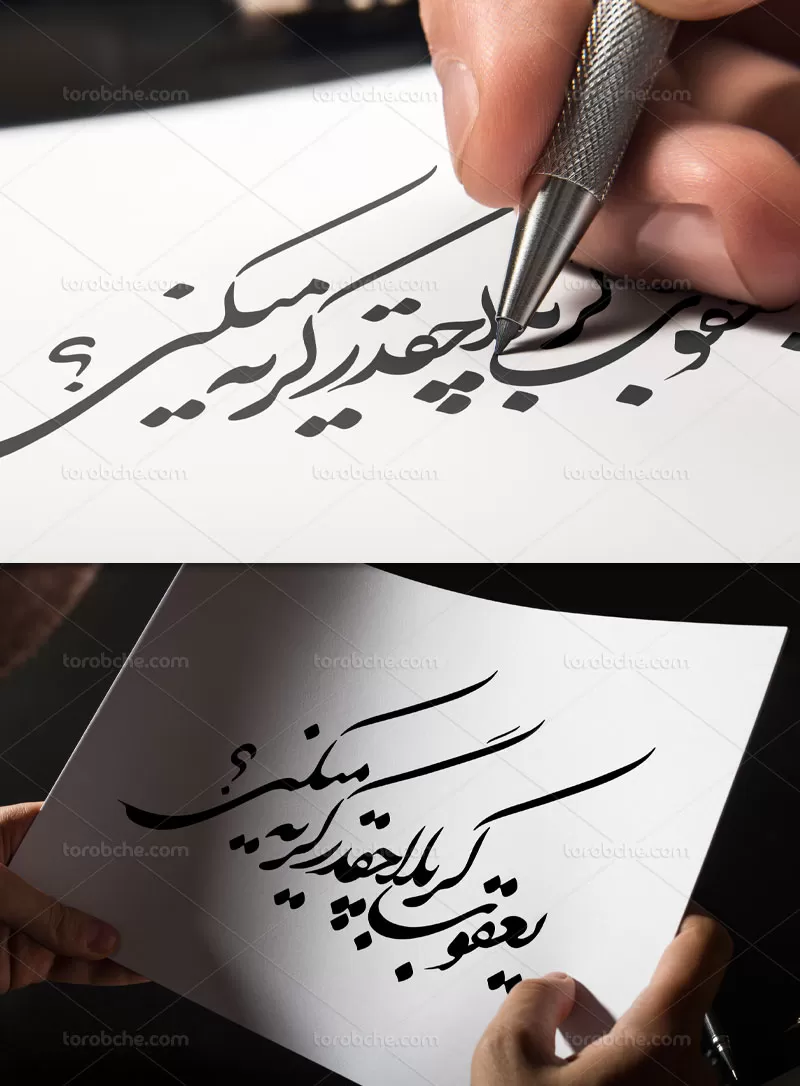 torobche.com torobche.com torobche.com
torobche.com torobche.com torobche.com
کربلا چقدر گریه میکنی؟
torobche.com torobche.com torobche.com
torobche.com torobche.com torobche.com
یعقوب کربلا چقدر گریه میکنی؟
torobche.com torobche.com torobche.com
torobche.com torobche.com torobche.com